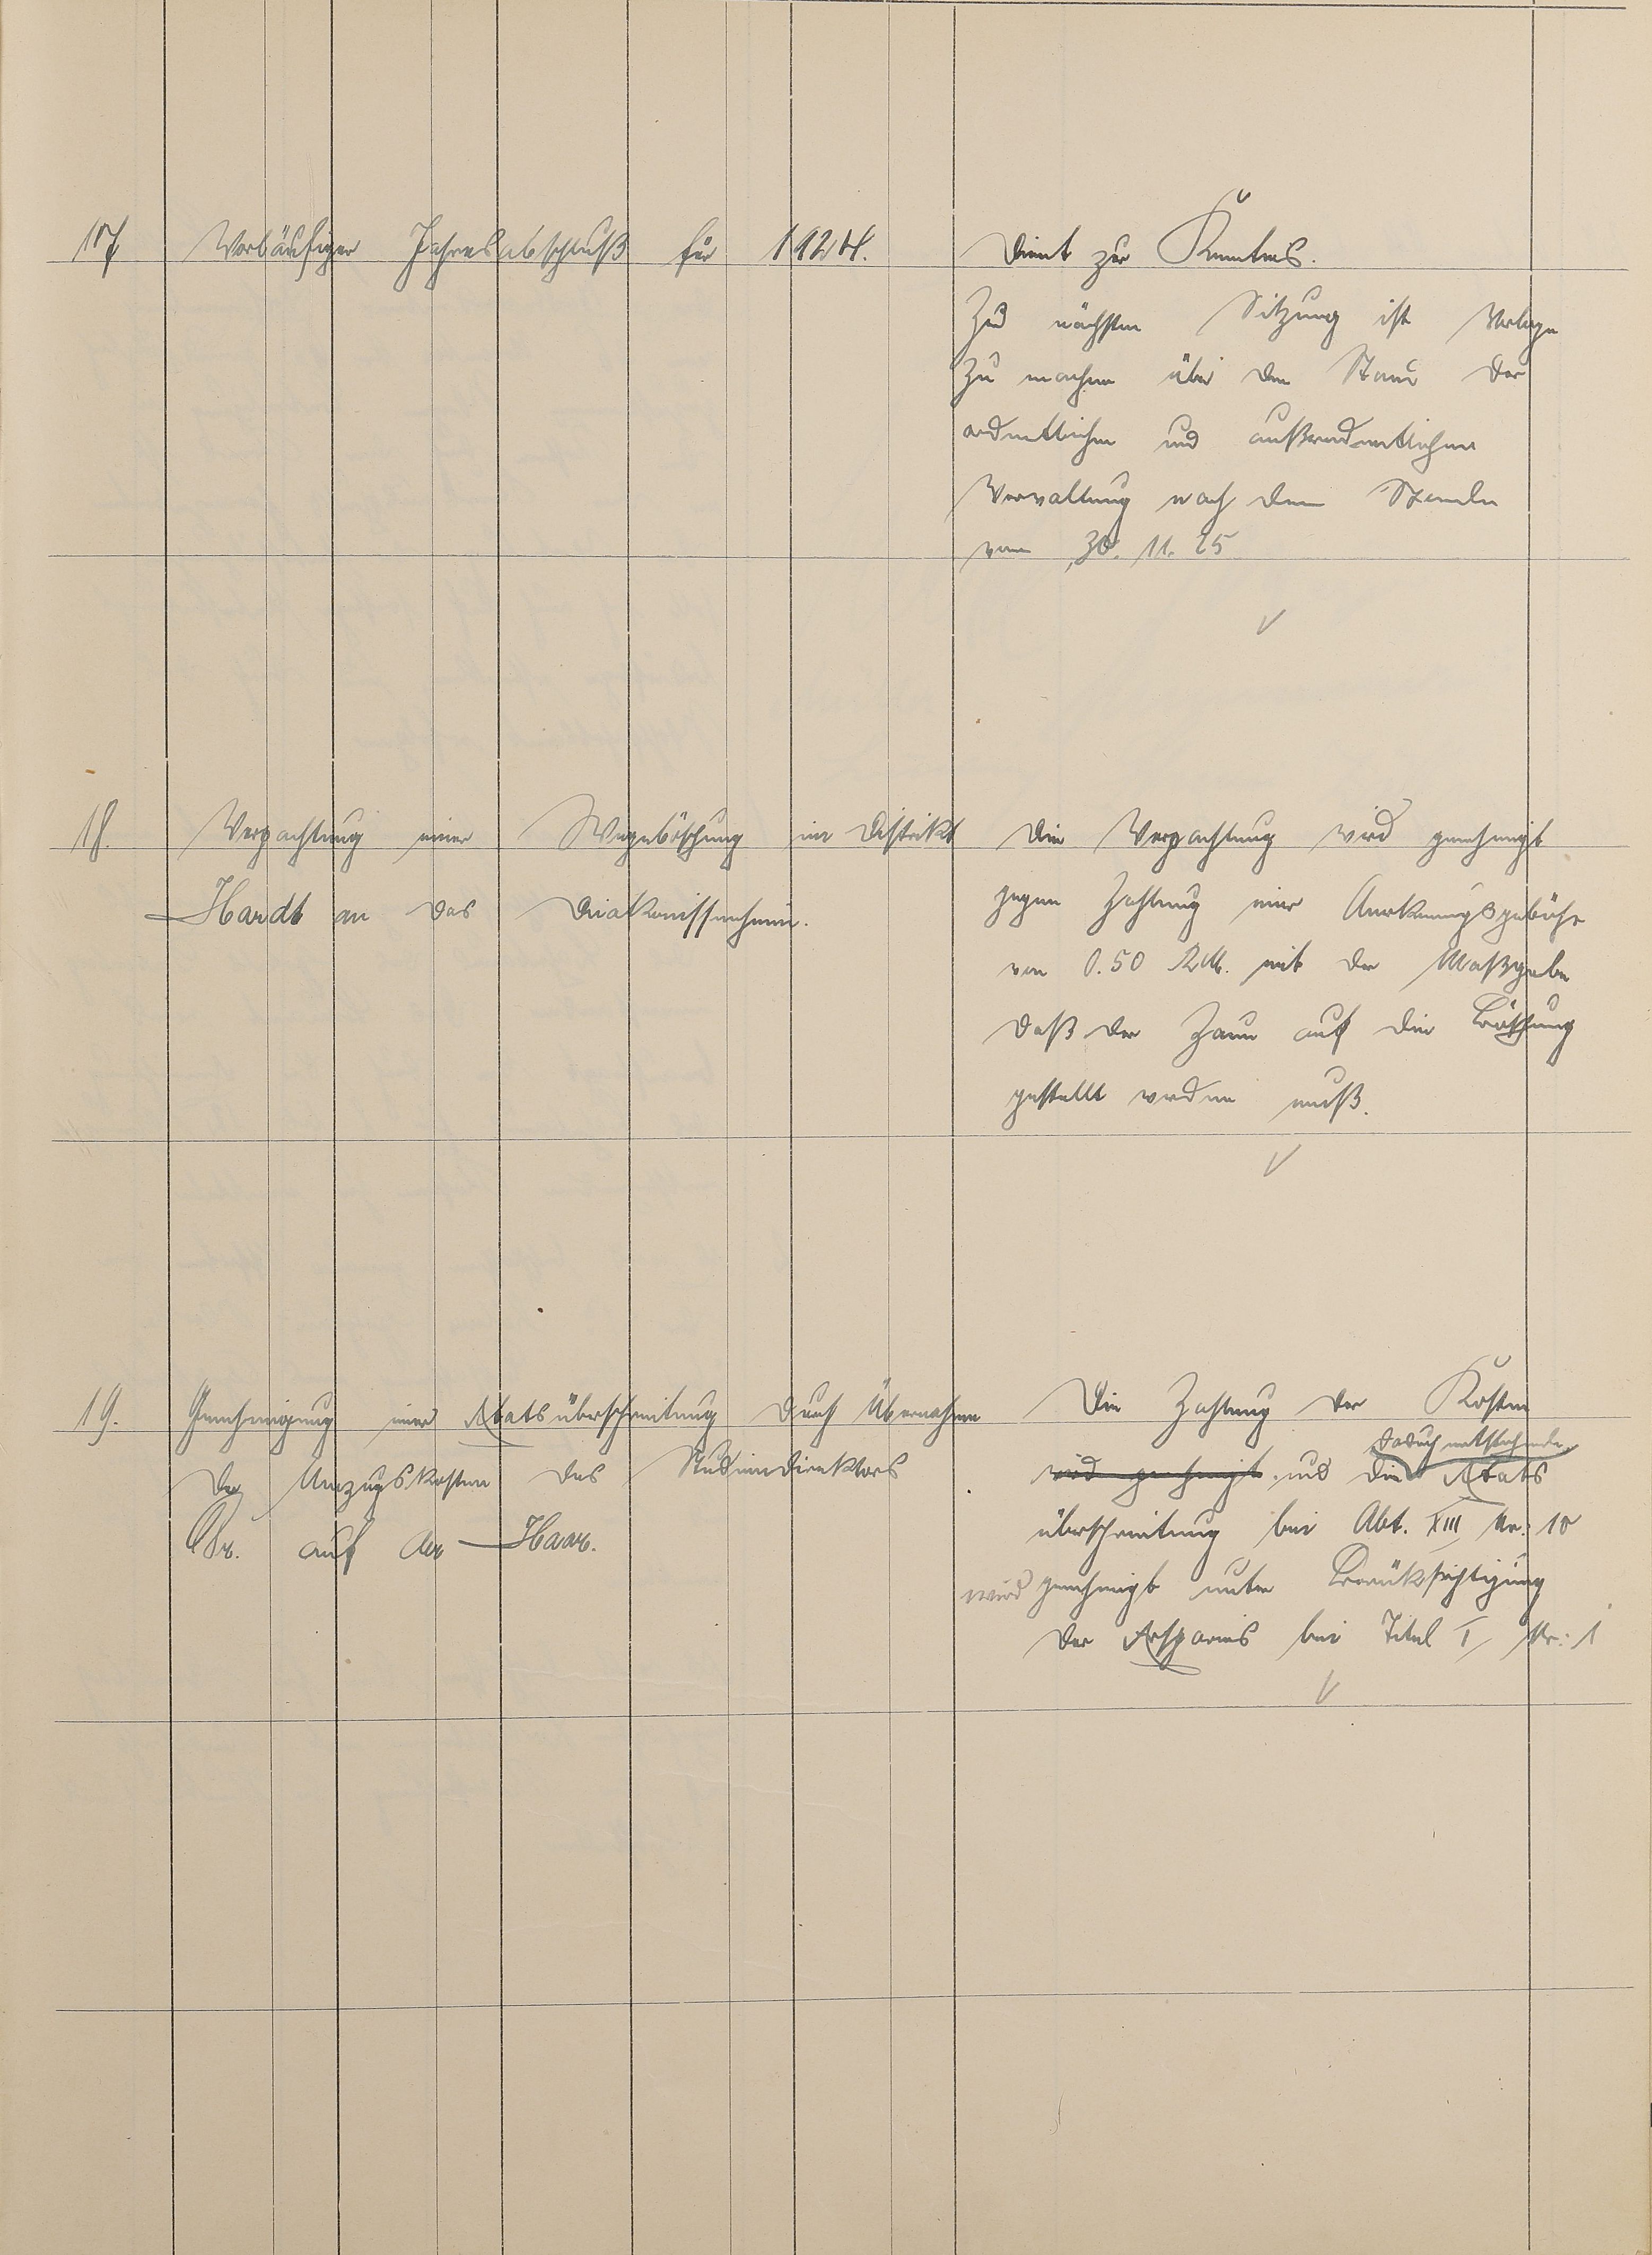 17 Vorläufiger Jahresabschluß für 1924.
Dient zur Kenntnis.
Zur nächsten Sitzung ist Vorlage
zu machen über den Stand der
ordentlichen und außerordentlichen
Verwaltung nach dem Stande
vom 30. 11. 25
18. Verpachtung einer Wegeböschung im Distrikt
Hardt an das Diakonissenheim.
Die Verpachtung wird genehmigt
gegen Zahlung einer Anerkennungsgebühr
von 0.50 RM. mit der Maßgabe
daß der Zaun auf die Böschung
gestellt werden muß.
19. Genehmigung einer Etatsüberschreitung durch Übernahme
der Umzugskosten des Studiendirektors
Dr. auf der Haar.
Die Zahlung der Kosten
dadurch entstehende
wird genehmigt und die Etats
überschreitung bei Abt. XIII Nr: 10
wird genehmigt unter Berücksichtigung
der Ersparnis bei Titel I Nr: 1